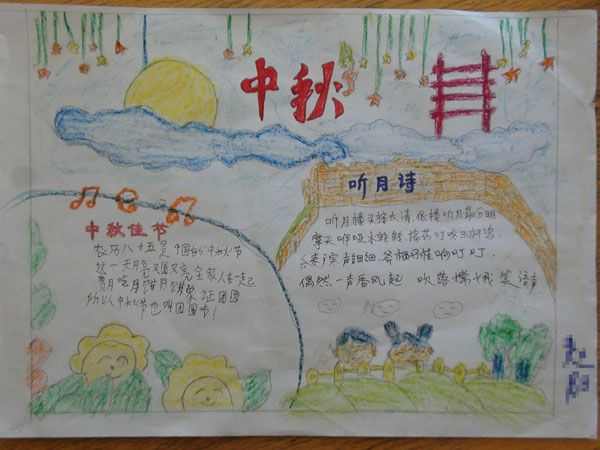 中秋
中秋佳节
农历八十五是中国的中秋节
这一天月亮又圆又亮 全家人在一起
赏月吃月饼 团圆
所以中秋节也叫团圆节!
听月诗
听月楼头接太清,依楼听月最分明
摩天咿哑冰轮转 捣药叮咚玉杵鸣
声细细 响叮叮
偶然一声香风起 吹落嫦娥笑语声